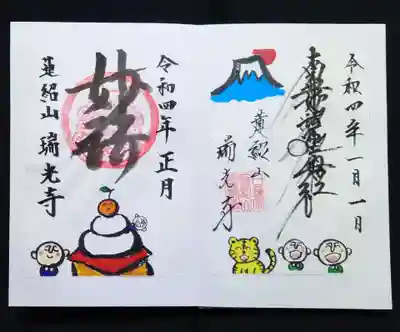 令和四年一月一日
南無妙法蓮華経
蓮紹山
瑞光寺
令和四年 正月
妙
蓮紹山 瑞光寺